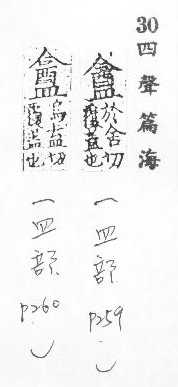 30
四聲篇海
盦
於含切
覆蓋也
(皿部
p259)
烏盍切
覆蓋也
(皿部
p260)